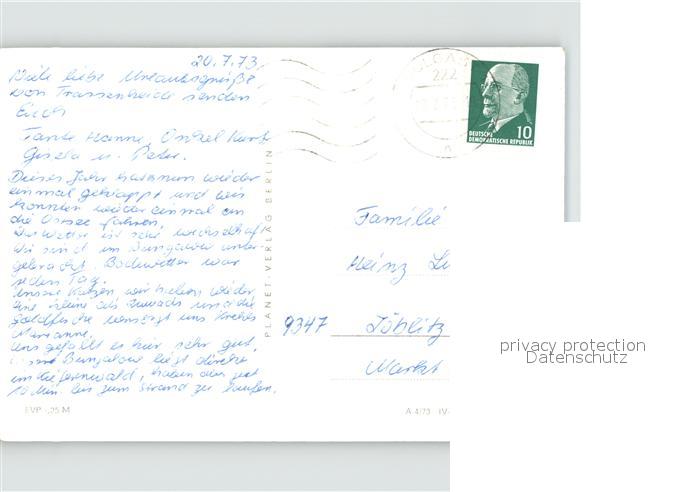 20.7.73.
Viele liebe Urlaubsgrüße
von Trassenheide senden
Euch
Tante Hanne, Onkel Kurt
Gisela u. Peter.
Dieses Jahr hat es nun wieder
einmal geklappt und wir
konnten wieder einmal an
die Ostsee fahren.
Das Wetter ist sehr wechselhaft
Wir sind im Bungalow unter-
gebracht. Badewetter war
jeden Tag.
Unsere Katzen wir haben wieder
eine kleine als Zuwachs und die
Goldfische versorgt uns
Marianne.
Uns gefällt es hier sehr gut,
Bungalow liegt direkt
im Kiefernwald, haben aber
10 Min. bis zum Strand zu laufen.
EVP -,25 M
PLANET-VERLAG BERLIN
222
10
DEUTSCHE
DEMOKRATISCHE REPUBLIK
Familie
Heinz
9347 Zöblitz
Markt
A 4/73 IV-
privacy protection
Datenschutz